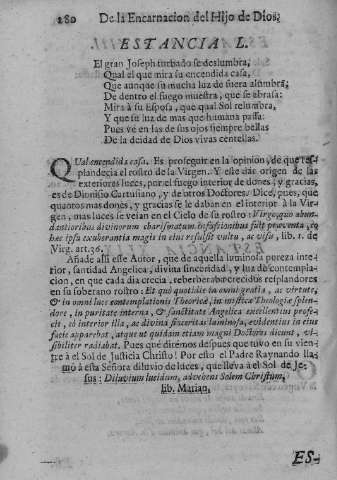 280 De la Encarnacion del Hijo de Dios.
ESTANCIA L.
El gran Joseph turbado se deslumbra,
Qual el que mira su encendida casa,
Que aunque su mucha luz de fuera alumbra,
De dentro el fuego muestra, que se abrasa:
Mira à su Esposa, que qual Sol relumbra,
Y que su luz de mas que humana passa:
Pues vè en las de sus ojos siempre bellas
De la deidad de Dios vivas centellas.
QUal encendida casa. Es proseguir en la opinion, de que res-
plandecia el rostro de la Virgen. Y este dàr origen de las
exteriores luces, por el fuego interior de dones, y gracias,
es de Dionisio Cartusiano, y de otros Doctores. Dice, pues, que
quantos mas dones, y gracias se le daban en el interior à la Vir-
gen, mas luces se veian en el Cielo de su rostro: Virgo, quo abun-
dantioribus divinorum charismatum infusionibus fuit præventa, eo
hæc ipsa exuberantia magis in eius resulsit vultu, ac visu, lib. 1. de
Virg. art. 36.
Añade assi este Autor, que de aquella luminosa pureza inte-
rior, santidad Angelica, divina sinceridad, y luz de contempla-
cion, en que cada dia crecia, reberbera aborecidos resplandores
en su soberano rostro: Et quò quotidie in omni gratia, ac virtute,
& in omni luce contemplationis Theoricæ, in mistica Theologiæ splen-
dore, in puritate interna, & sanctitate Angelica excellentius profe-
cit, eò interior illa, ac divina sinceritas luminosa, evidentius in eius
facie apparebat, atque ut quidam etiam magni Doctores dicunt, vi-
sibiliter radiabat. Pues què dirèmos despues que tuvo en su vien-
tre à el Sol de Justicia Christo! Por esto el Padre Raynando lla-
mò à esta Señora diluvio de luces, que lleva à el Sol de Je-
sus: Diluvium lucidum, advehens Solem Christum,
lib. Marian.
ES-